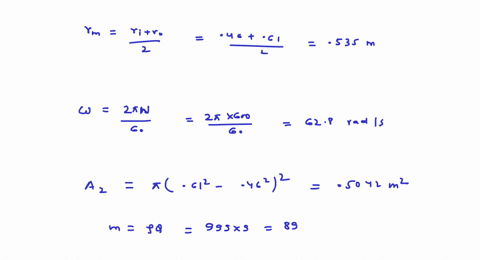 rm = r1+r0/2 = .46 + .61/2 = .535 m
ω = 2πN/60 = 2π×600/60 = 62.8 rad/s
A2 = π( .61² - .46² )² = .5042 m²
m = ρQ = 995×9 = 89